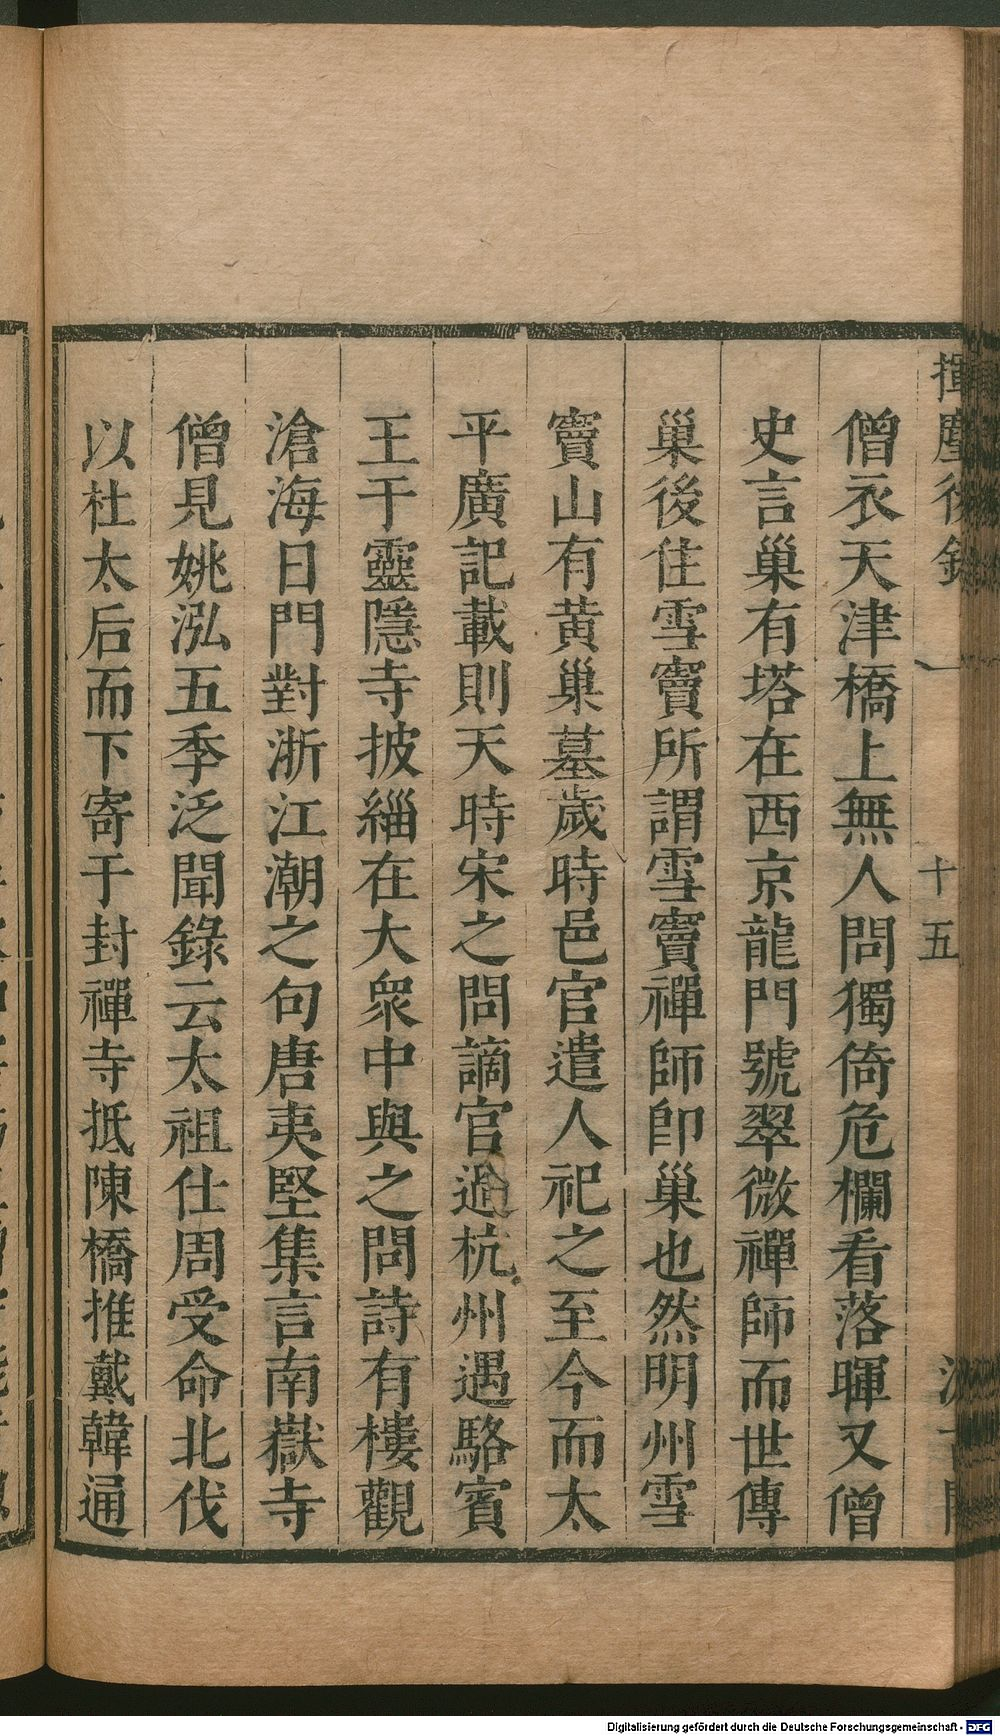 揮麈後錄
十五
僧衣天津橋上無人問獨倚危欄看落暉又僧
史言巢有塔在西京龍門號翠微禪師而世傳
巢後住雪竇所謂雪竇禪師即巢也然明州雪
竇山有黄巢墓歲時邑官遣人祀之至今而太
平廣記載則天時宋之問謫官過杭州遇駱賓
王于靈隱寺披緇在大衆中與之問詩有樓觀
滄海日門對浙江潮之句唐夷堅集言南嶽寺
僧見姚泓五季泛聞錄云太祖仕周受命北伐
以杜太后而下寄于封禪寺抵陳橋推戴韓通
Digitalisierung gefördert durch die Deutsche Forschungsgemeinschaft - DFG